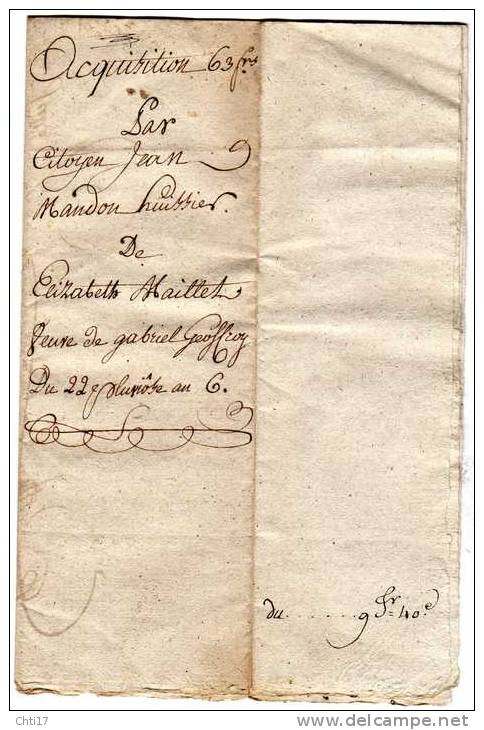 Acquisition 63 frs
Par
Citoyen Jean
Mandon huissier.
De
Elizabeth Maillet,
Veuve de gabriel Geoffroy
Du 22 pluviôse an 6.
du ....... 9 fr 40 c
Chti17
www.delcampe.net